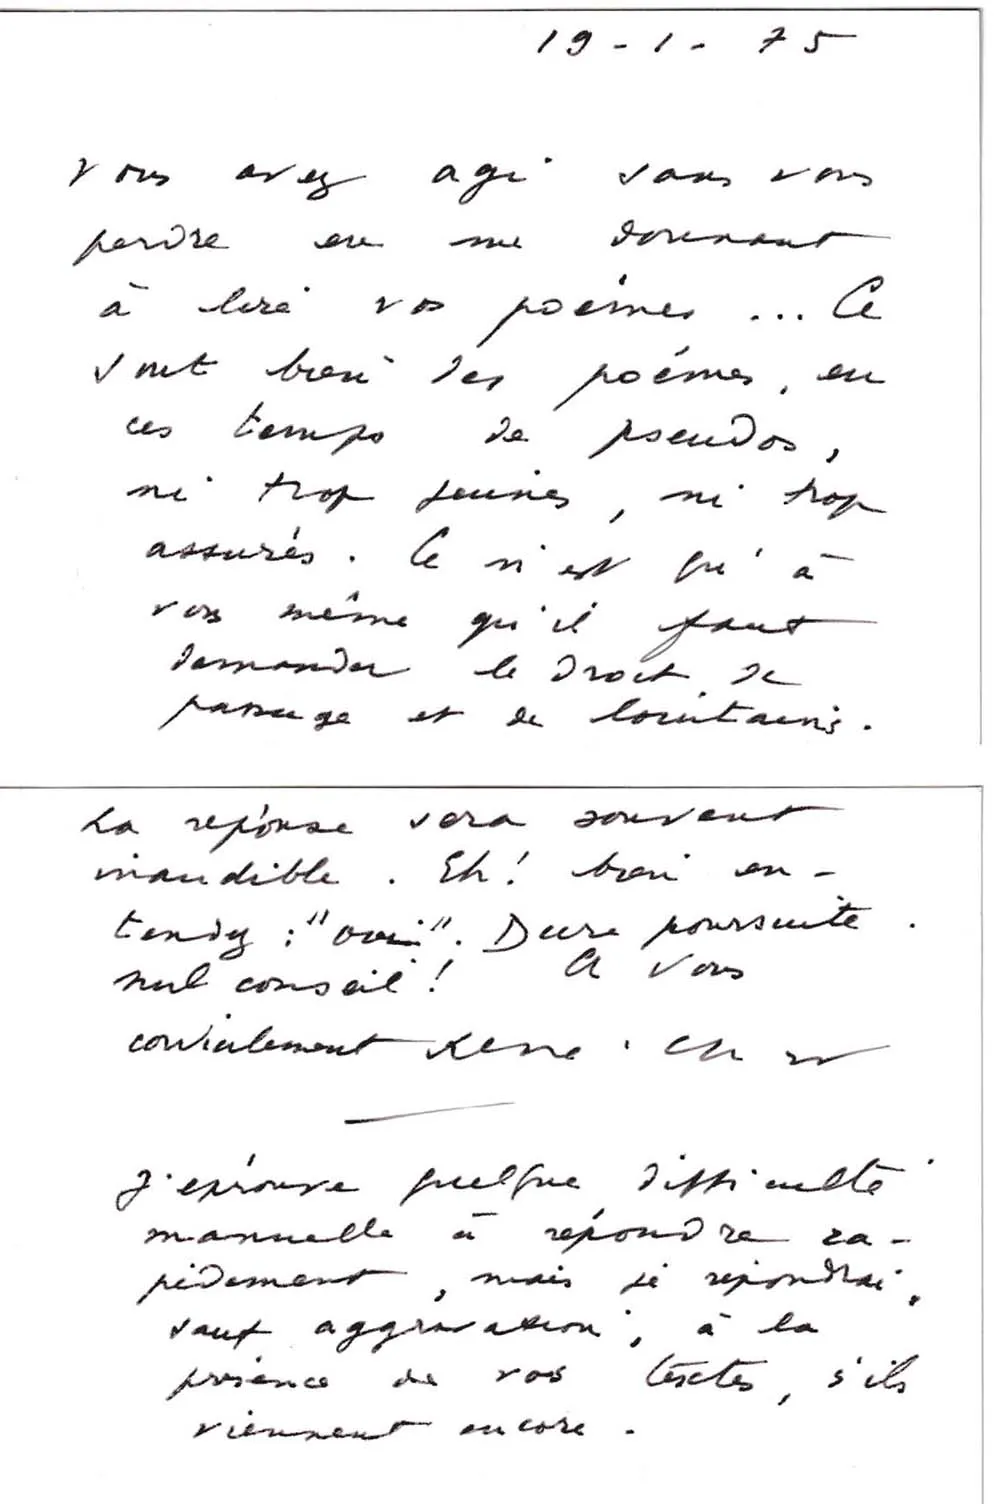 19-1-75
Vous avez agi sans vous
perdre en me donnant
à lire vos poèmes ... Ce
sont bien des poèmes, en
ces temps de pseudos,
ni trop jeunes, ni trop
assurés. Ce n'est qu'à
vous même qu'il faut
demander le droit de
passage et de lointains.
La réponse sera souvent
inaudible. Eh! bien en-
tendez : "oui". Dure poursuite.
nul conseil! A Vous
cordialement René Char
J'éprouve quelque difficulté
manuelle à répondre ra-
pidement, mais je répondrai,
sauf aggravation, à la
présence de vos textes, s'ils
viennent encore.